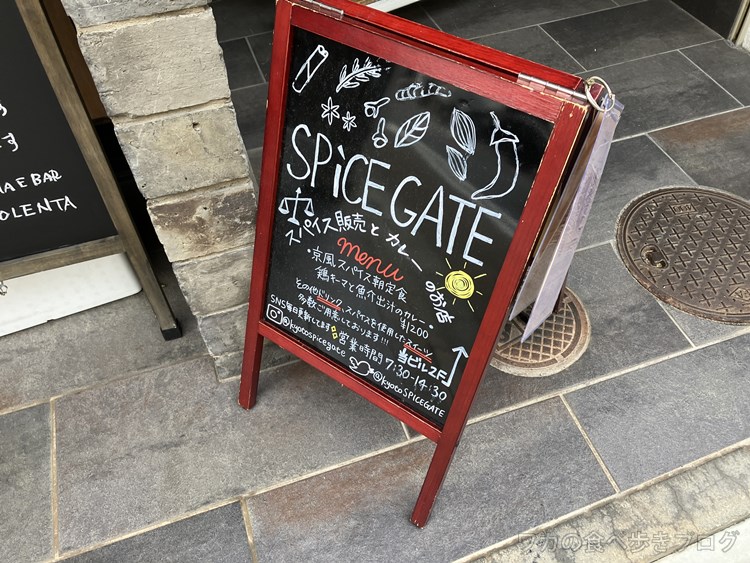 SPiCE GATE
スパイス販売とカレーのお店
menu
・京風スパイス朝定食
鶏キーマと魚介出汁のカレー・
¥1200
その他ドリンク、スパイスを使用したスイーツ
多数ご用意しております!!!
SNS毎日更新してます
当ビル2F
営業時間 7:30-14:30
@kyotospicegate
@kyotoSPICEGATE
す
MAE BAR
OLENTA
ワカの食べ歩きブログ